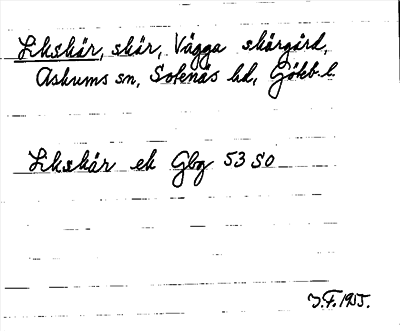 Likskär, skär, Vägga skärgård,
Askums sn, Sotenäs hd, Gökb. l.
Likskär ek Gbg 53 SO
J.F. 1955.